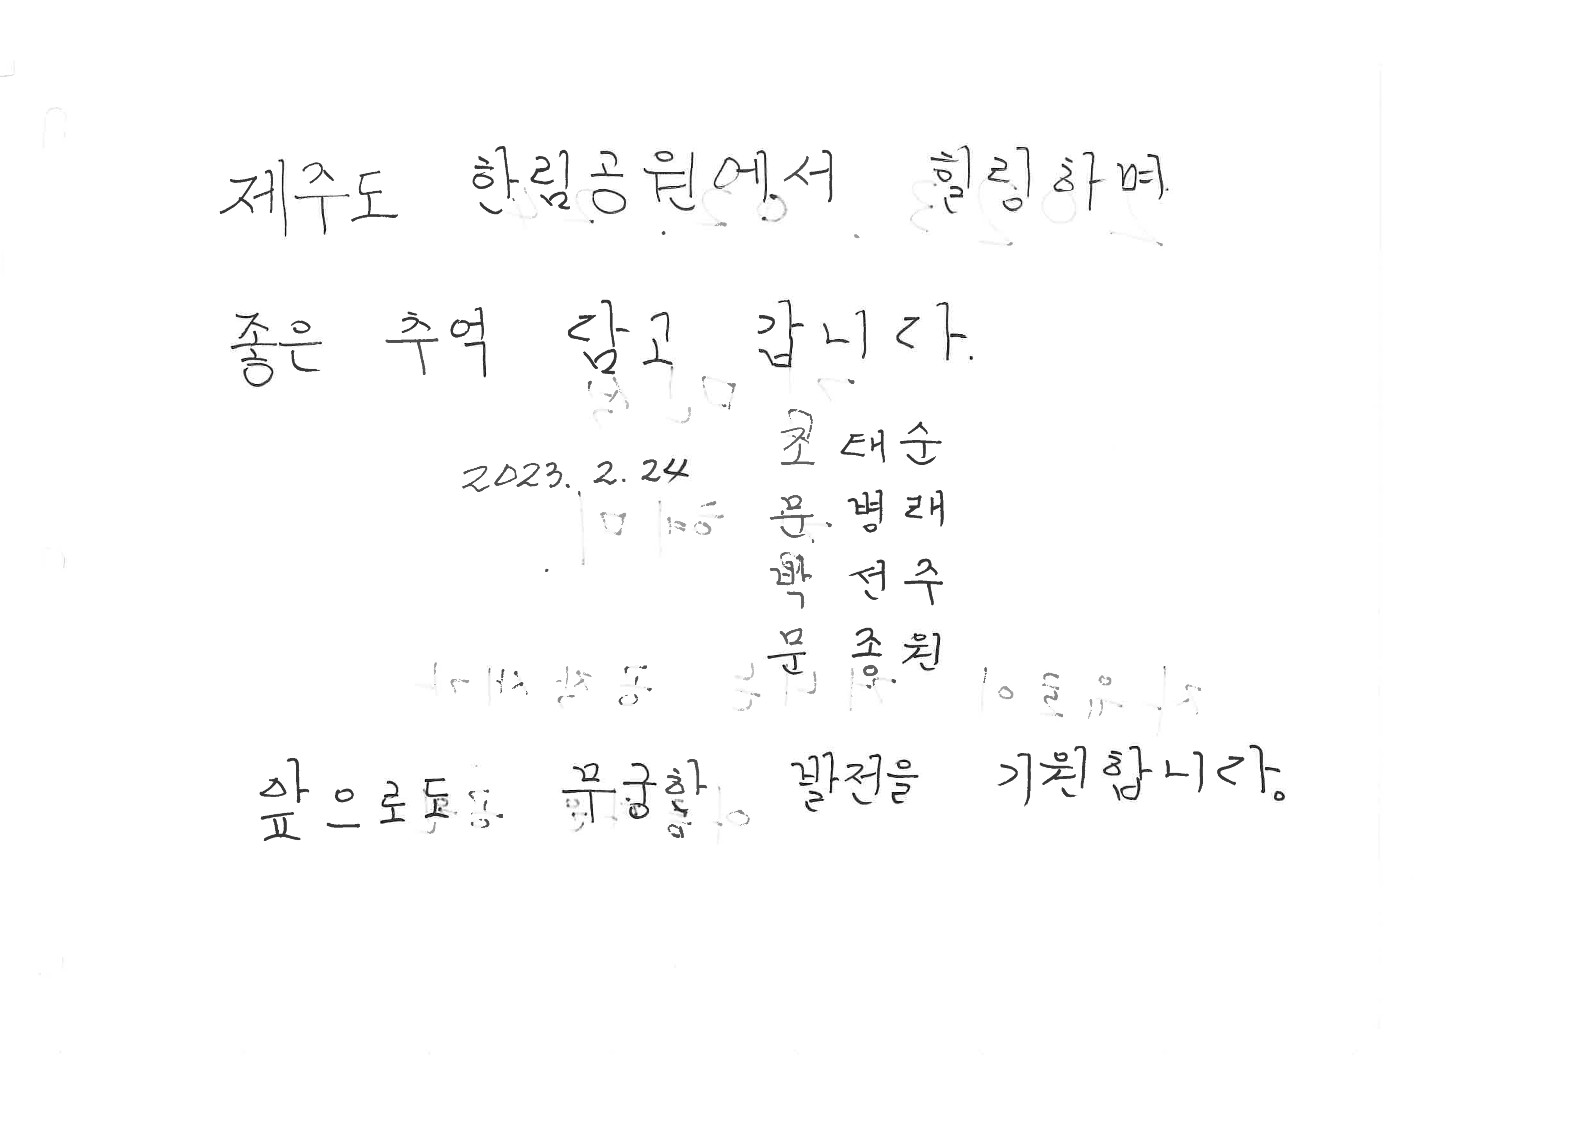 제주도 한림공원에서 힐링하며
좋은 추억 담고 갑니다.
2023. 2. 24
조태순
문병래
박선주
문종원
앞으로도 무궁한 발전을 기원합니다.